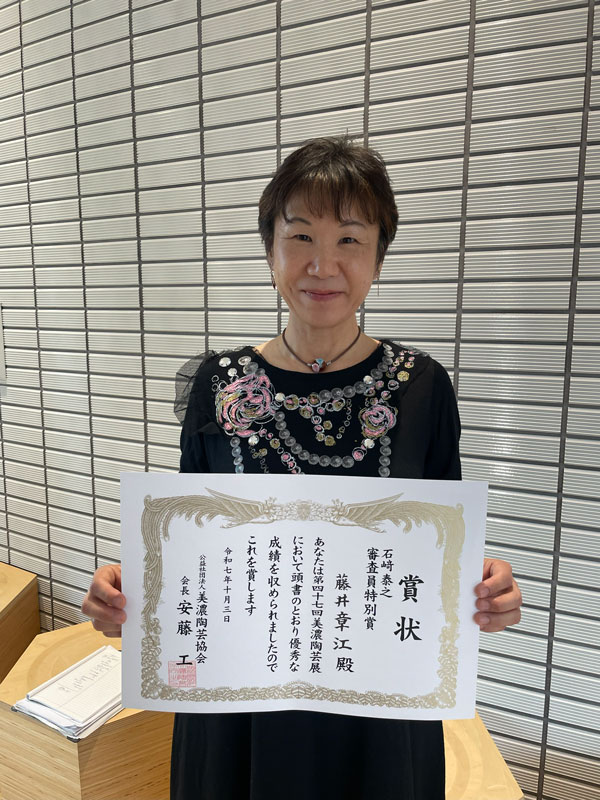 賞状
石﨑泰之
審査員特別賞
藤井章江殿
あなたは第四十七回美濃陶芸展
において頭書のとおり優秀な
成績を収められましたので
これを賞します
令和七年十月三日
公益社団法人美濃陶芸協会
会長 安藤 工